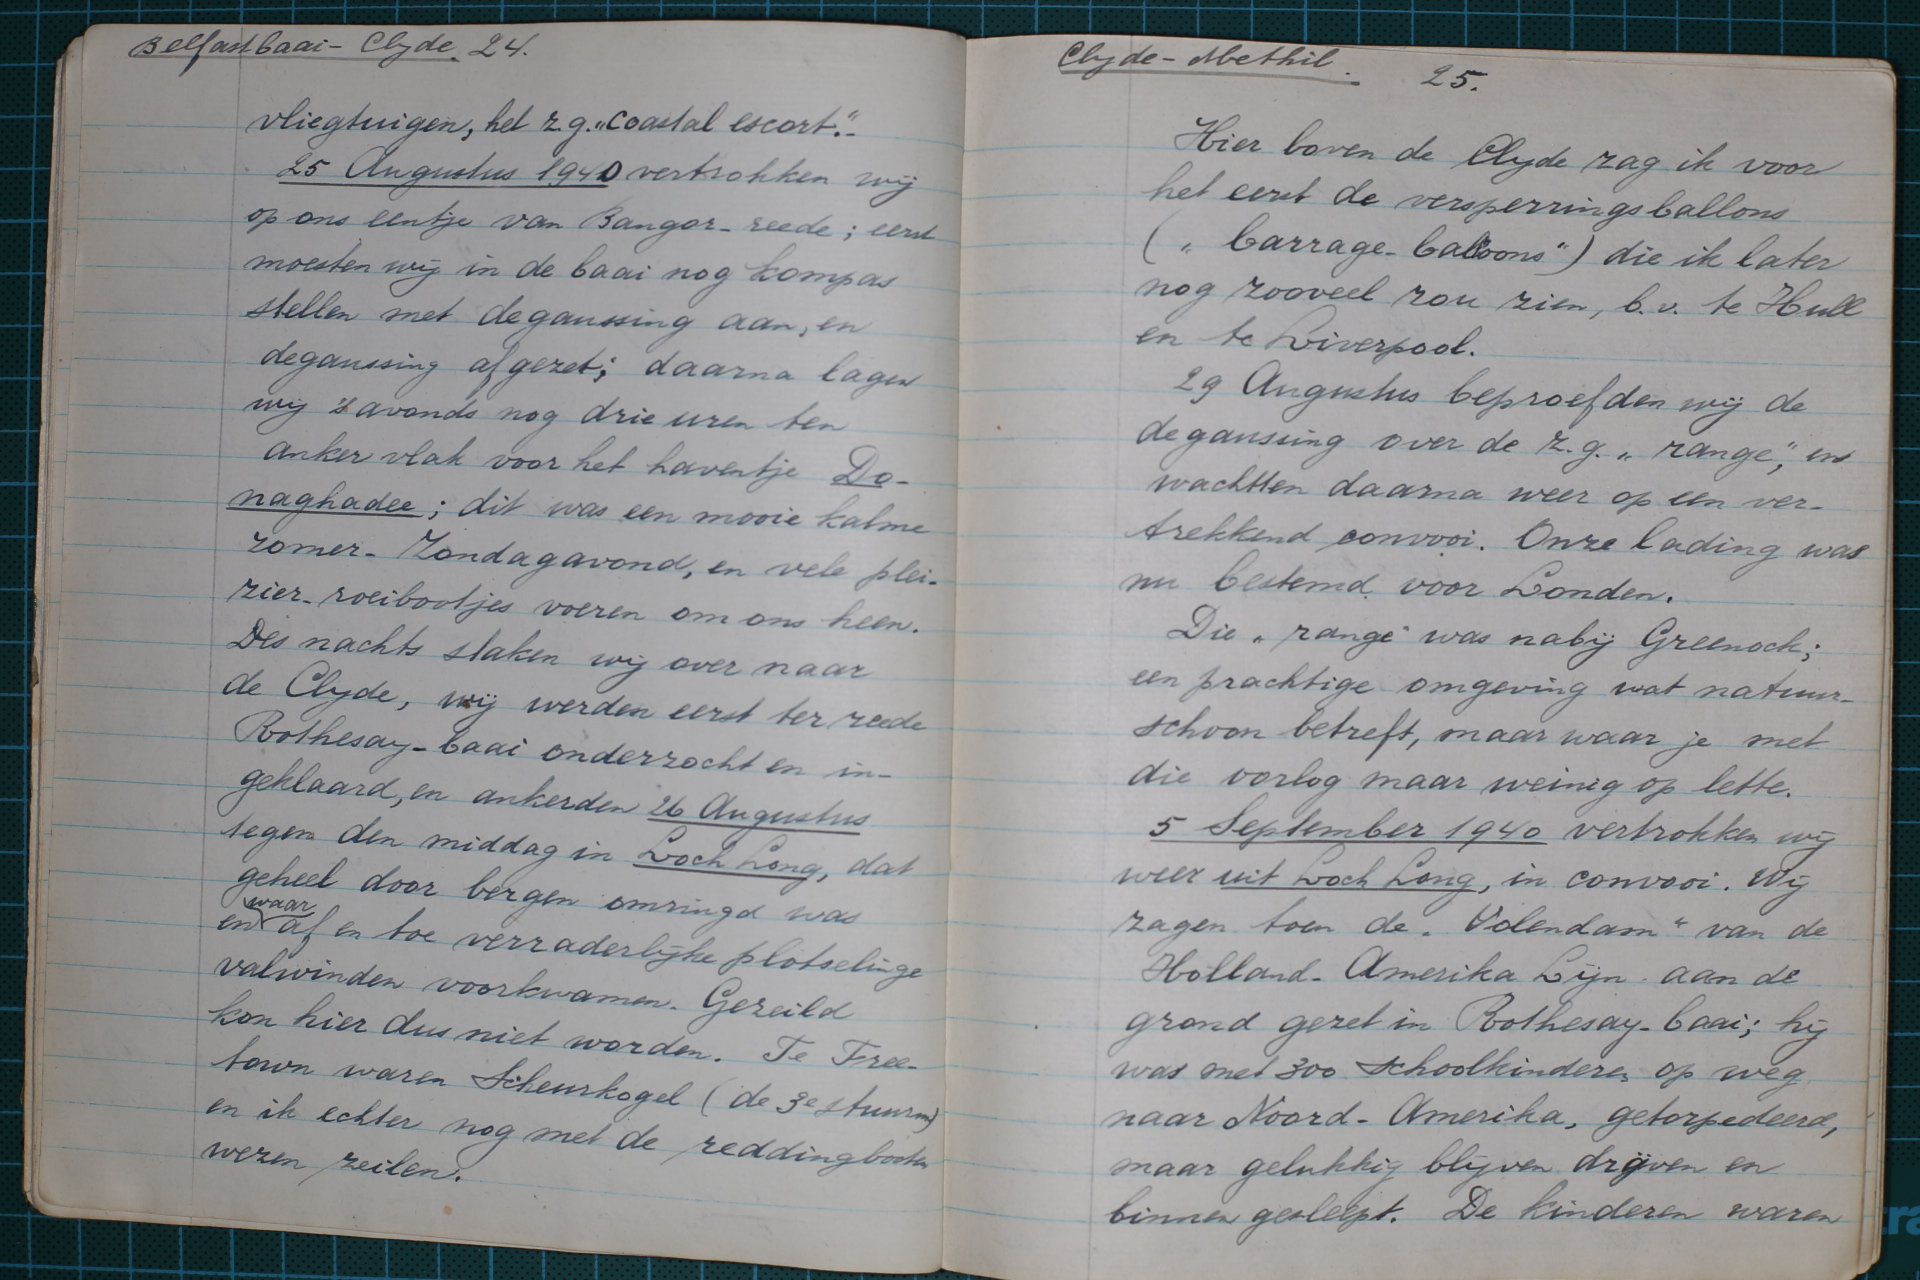 Belfastbaai - Clyde. 24.
vliegtuigen, het z.g. „coastal escort."
25 Augustus 1940 vertrokken wij
op ons eentje van Bangor-reede; eerst
moesten wij in de baai nog kompas
stellen met degaussing aan, en
degaussing afgezet; daarna lagen
wij 's avonds nog drie uren ten
anker vlak voor het haventje Do-
naghadee; dit was een mooie kalme
zomer-Zondagavond, en vele plei-
zier-roeibootjes voeren om ons heen.
Des nachts staken wij over naar
de Clyde, wij werden eerst ter reede
Rothesay-baai onderzocht en in-
geklaard, en ankerden 26 Augustus
tegen den middag in Loch Long, dat
geheel door bergen omringd was
en waar af en toe verraderlijke plotselinge
valwinden voorkwamen. Gezeild
kon hier dus niet worden. Te Free-
town waren Scheurkogel (de 3e stuurm)
en ik echter nog met de reddingbooten
wezen zeilen.
Clyde - Methil. 25.
Hier boven de Clyde zag ik voor
het eerst de versperringsballons
(„barrage-balloons") die ik later
nog zooveel zou zien, b.v. te Hull
en te Liverpool.
29 Augustus beproefden wij de
degaussing over de z.g. „range", en
wachtten daarna weer op een ver-
trekkend convooi. Onze lading was
nu bestemd voor Londen.
Die „range" was nabij Greenock;
een prachtige omgeving wat natuur-
schoon betreft, maar waar je met
die oorlog maar weinig op lette.
5 September 1940 vertrokken wij
weer uit Loch Long, in convooi. Wij
zagen toen de „Volendam" van de
Holland-Amerika Lijn aan de
grond gezet in Rothesay-baai; hij
was met 300 schoolkinderen op weg
naar Noord-Amerika, getorpedeerd,
maar gelukkig blijven drijven en
binnen gesleept. De kinderen waren